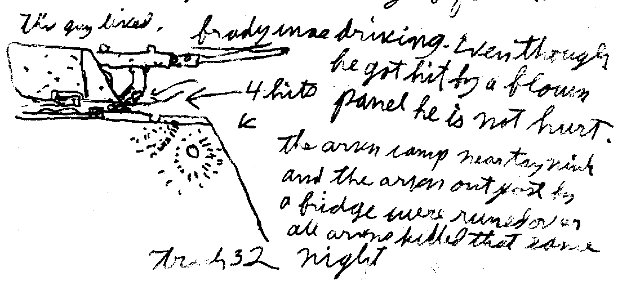 This guy lived.
brady was driving. Even though
he got hit by a blown
panel he is not hurt.
4 hits
the arvn camp near tay ninh
and the arvn out post by
a bridge were runed over
all arvns killed that same
night
track 32